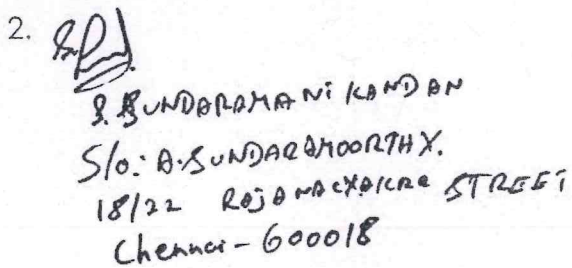 2.
S. SUNDARAMANIKANDAN
S/o: A. SUNDARAMOORTHY.
18/22 STREET
Chennai - 600018